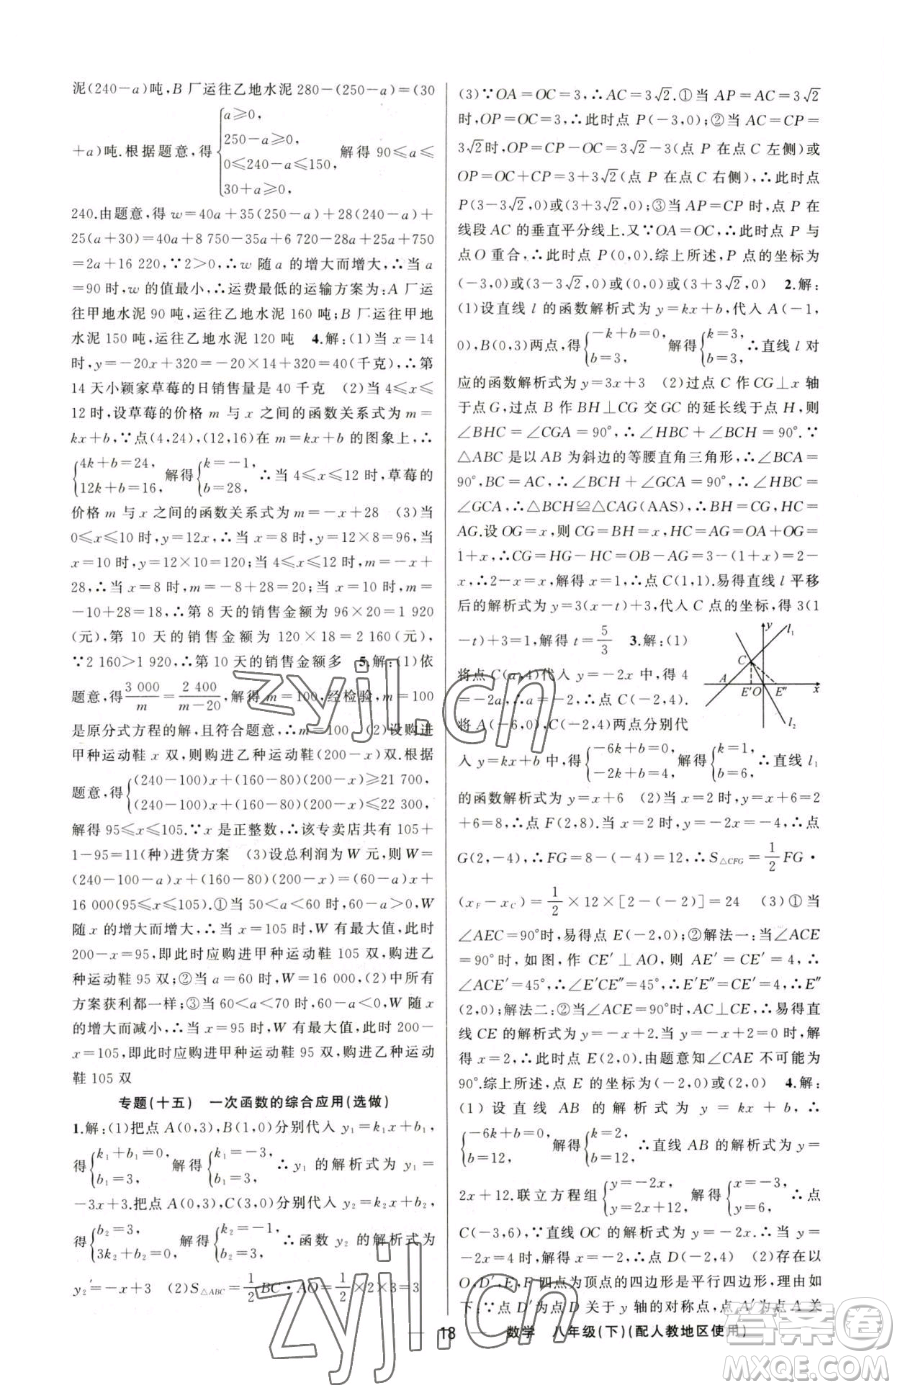 泥(240-a)吨,B厂运往乙地水泥280-(250-a)=(30
+a)吨.根据题意,得{a≥0, 250-a≥0, 0≤240-a≤150, 30+a≥0, 解得90≤a≤
240.由题意,得w=40a+35(250-a)+28(240-a)+
25(a+30)=40a+8 750-35a+6 720-28a+25a+750=
2a+16 220,∵2>0,∴w随a的增大而增大,∴当a
=90时,w的值最小,∴运费最低的运输方案为:A厂运
往甲地水泥90吨,运往乙地水泥160吨;B厂运往甲地
水泥150吨,运往乙地水泥120吨 4.解:(1)当x=14
时,y=-20x+320=-20×14+320=40(千克),∴第
14天小颖家草莓的日销售量是40千克 (2)当4≤x≤
12时,设草莓的价格m与x之间的函数关系式为m=
kx+b,∵点(4,24),(12,16)在m=kx+b的图象上,∴
{4k+b=24, 12k+b=16, 解得{k=-1, b=28, ∴当4≤x≤12时,草莓的
价格m与x之间的函数关系式为m=-x+28 (3)当
0≤x≤10时,y=12x,∴当x=8时,y=12×8=96,当
x=10时,y=12×10=120;当4≤x≤12时,m=-x+
28,∴当x=8时,m=-8+28=20,当x=10时,m=
-10+28=18,∴第8天的销售金额为96×20=1 920
(元),第10天的销售金额为120×18=2 160(元),
∵2 160>1 920,∴第10天的销售金额多 5.解:(1)依
题意,得3 000/m=2 400/(m-20),解得m=100,经检验,m=100
是原分式方程的解,且符合题意,∴m=100 (2)设购进
甲种运动鞋x双,则购进乙种运动鞋(200-x)双.根据
题意,得{(240-100)x+(160-80)(200-x)≥21 700, (240-100)x+(160-80)(200-x)≤22 300,
解得95≤x≤105.∵x是正整数,∴该专卖店共有105+
1-95=11(种)进货方案 (3)设总利润为W元,则W=
(240-100-a)x+(160-80)(200-x)=(60-a)x+
16 000(95≤x≤105).①当50<a<60时,60-a>0,W
随x的增大而增大,∴当x=105时,W有最大值,此时
200-x=95,即此时应购进甲种运动鞋105双,购进乙
种运动鞋95双;②当a=60时,W=16 000,(2)中所有
方案获利都一样;③当60<a<70时,60-a<0,W随x
的增大而减小,∴当x=95时,W有最大值,此时200-
x=105,即此时应购进甲种运动鞋95双,购进乙种运动
鞋105双
专题(十五) 一次函数的综合应用(选做)
1.解:(1)把点A(0,3),B(1,0)分别代入y₁=k₁x+b₁,
得{k₁+b₁=0, b₁=3, 解得{k₁=-3, b₁=3, ∴y₁的解析式为y₁=
-3x+3.把点A(0,3),C(3,0)分别代入y₂=k₂x+b₂,
得{b₂=3, 3k₂+b₂=0, 解得{k₂=-1, b₂=3, ∴函数y₂的解析式为
y₂=-x+3 (2)S△ABC=1/2BC·AO=1/2×2×3=3
(3)∵OA=OC=3,∴AC=3√2.①当AP=AC=3√2
时,OP=OC=3,∴此时点P(-3,0);②当AC=CP=
3√2时,OP=CP-OC=3√2-3(点P在点C左侧)或
OP=OC+CP=3+3√2(点P在点C右侧),∴此时点
P(3-3√2,0)或(3+3√2,0);③当AP=CP时,点P在
线段AC的垂直平分线上.又∵OA=OC,∴此时点P与
点O重合,∴此时点P(0,0).综上所述,P点的坐标为
(-3,0)或(3-3√2,0)或(3+3√2,0)或(0,0) 2.解:
(1)设直线l的函数解析式为y=kx+b,代入A(-1,
0),B(0,3)两点,得{-k+b=0, b=3, 解得{k=3, b=3, ∴直线l对
应的函数解析式为y=3x+3 (2)过点C作CG⊥x轴
于点G,过点B作BH⊥CG交GC的延长线于点H,则
∠BHC=∠CGA=90°,∴∠HBC+∠BCH=90°.∵
△ABC是以AB为斜边的等腰直角三角形,∴∠BCA=
90°,BC=AC,∴∠HCB+∠GCA=90°,∴∠HBC=
∠GCA,∴△BCH≌△CAG(AAS),∴BH=CG,CH=
AG.设OG=x,则CG=BH=x,CH=AG=OA+OG=
1+x,∴CG=HG-HC=OB-AG=3-(1+x)=2-
x,∴2-x=x,解得x=1,∴点C(1,1).易得直线l平移
后的解析式为y=3(x-t)+3,代入C点的坐标,得3(1
-t)+3=1,解得t=5/3 3.解:(1)
将点C(a,4)代入y=-2x中,得4
=-2a,∴a=-2,∴点C(-2,4).
将A(-6,0),C(-2,4)两点分别代
入y=kx+b中,得{-6k+b=0, -2k+b=4, 解得{k=1, b=6, ∴直线l₁
的函数解析式为y=x+6 (2)当x=2时,y=x+6=2
+6=8,∴点F(2,8).当x=2时,y=-2x=-4,∴点
G(2,-4),∴FG=8-(-4)=12,∴S△CFG=1/2FG·
(xF-xC)=1/2×12×[2-(-2)]=24 (3)①当
∠AEC=90°时,易得点E(-2,0);②解法一:当∠ACE
=90°时,如图,作CE′⊥AO,由题意,得AE′=CE′=4,
∴∠ACE′=45°,∴∠E′CE″=45°,∴E′E″=CE′=4,∴E″
(2,0);解法二:②当∠ACE=90°时,AC⊥CE,易得直
线CE的解析式为y=-x+2,∴当y=-x+2=0时,
解得x=2,∴此时点E(2,0).由题意知∠CAE不可能为
90°.综上所述,点E(-2,0)或(2,0) 4.解:
(1)设直线AB的解析式为y=kx+b,则
{-6k+b=0, b=12, 解得{k=2, b=12, ∴直线AB的解析式为y=
2x+12,联立方程组{y=-2x, y=2x+12, 解得{x=-3, y=6, ∴点
C(-3,6),∵直线OC的解析式为y=-2x,∴当y=
-2x=4时,解得x=-2,∴点D(-2,4) (2)存在以
O,D′,E,F为顶点的四边形是平行四边形.理由如
下:∵点D′为点D关于y轴的对称点,点A′为点A关
y
l₁
C
A
E′
O
E″
x
l₂
18
数学 八年级(下)(配人教地区使用)
zyjl.cn
zyjl.cn
答案圈
MXQE.COM